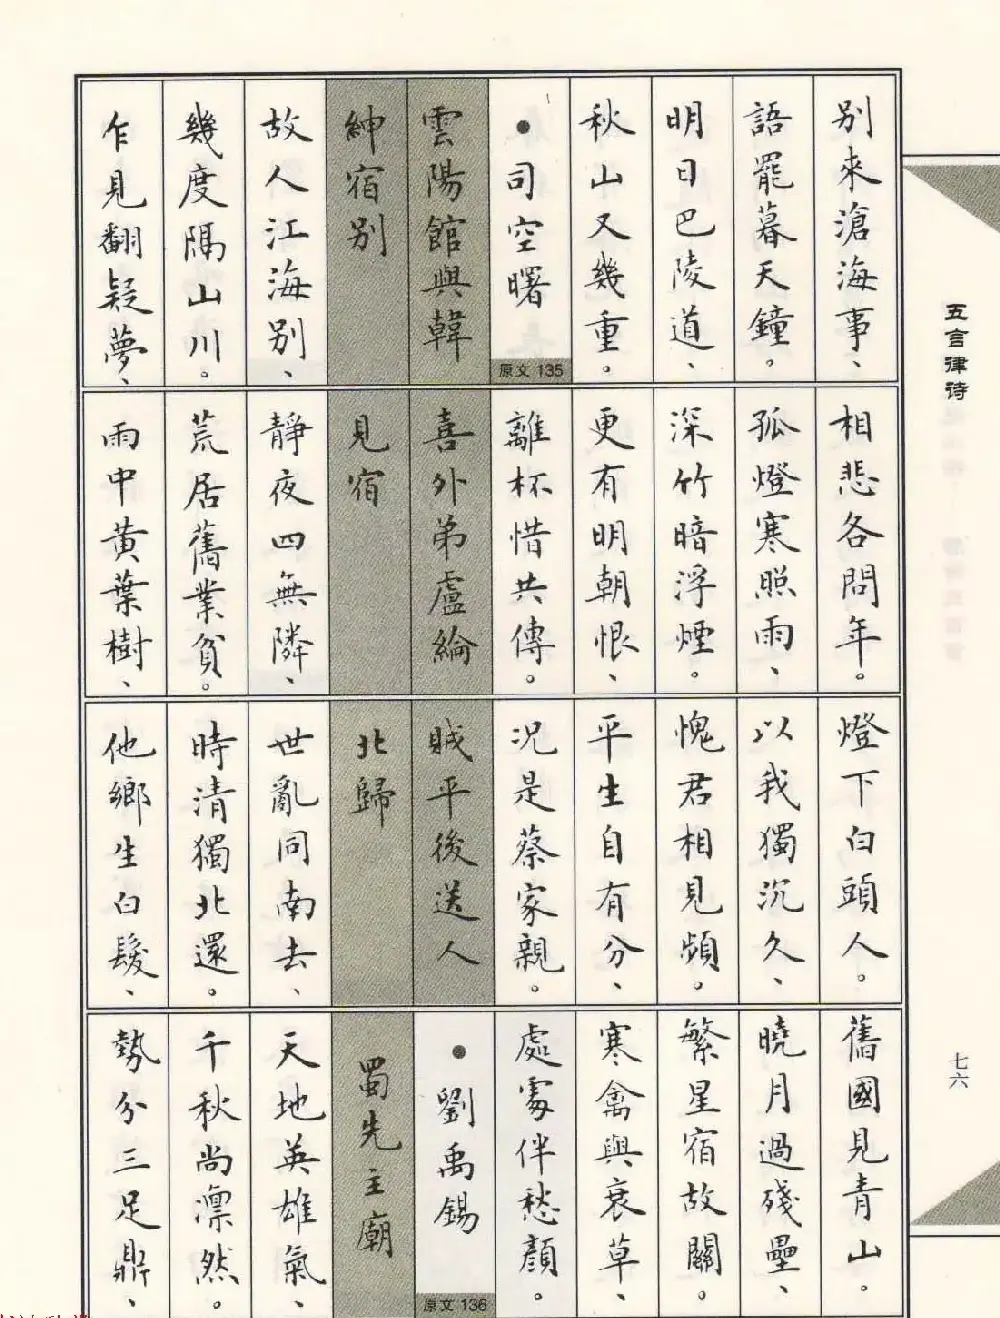 別來滄海事、
語罷暮天鐘。
明日巴陵道、
秋山又幾重。
●司空曙
原文 135
雲陽館與韓
紳宿別
故人江海別、
幾度隔山川。
乍見翻疑夢、
相悲各問年。
孤燈寒照雨、
深竹暗浮煙。
更有明朝恨、
離杯惜共傳。
喜外弟盧綸
見宿
靜夜四無隣、
荒居舊業貧。
雨中黃葉樹、
燈下白頭人。
以我獨沉久、
愧君相見頻。
平生自有分、
況是蔡家親。
賊平後送人
北歸
世亂同南去、
時清獨北還。
他鄉生白髮、
舊國見青山。
曉月過殘壘、
繁星宿故關。
寒禽與衰草、
處處伴愁顏。
●劉禹錫
原文 136
蜀先主廟
天地英雄氣、
千秋尚凜然。
勢分三足鼎、
五言律诗
七六